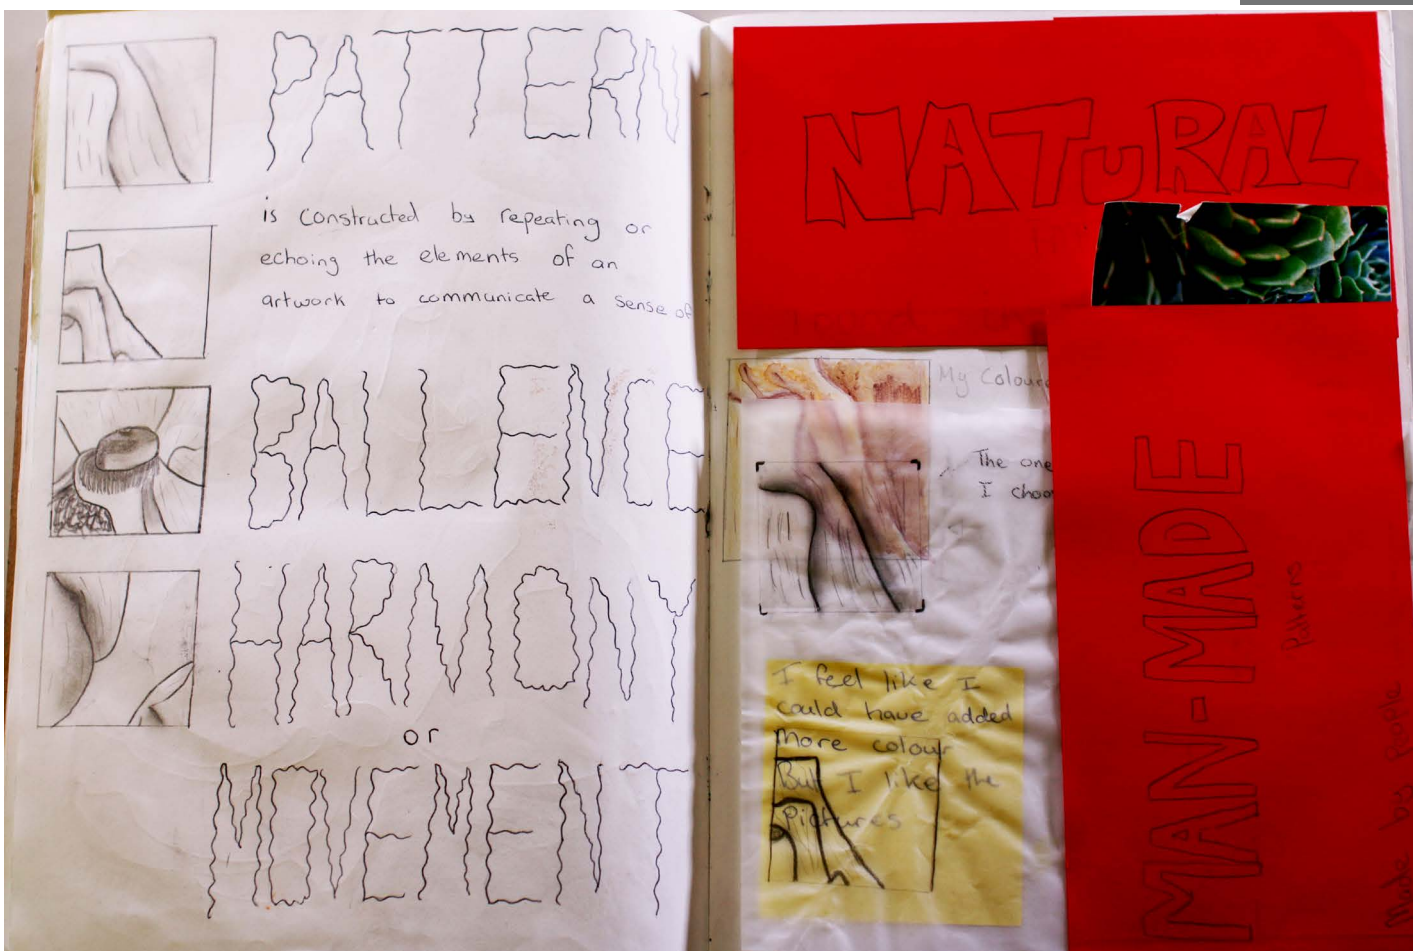 PATTERN
is constructed by repeating or
echoing the elements of an
artwork to communicate a sense of
BALLENCE
HARMONY
or
MOVEMENT
NATURAL
My Colour
The one
I choo
I feel like I
could have added
More colour
But I like the
Pictures
MAN-MADE
Patterns
Made by People